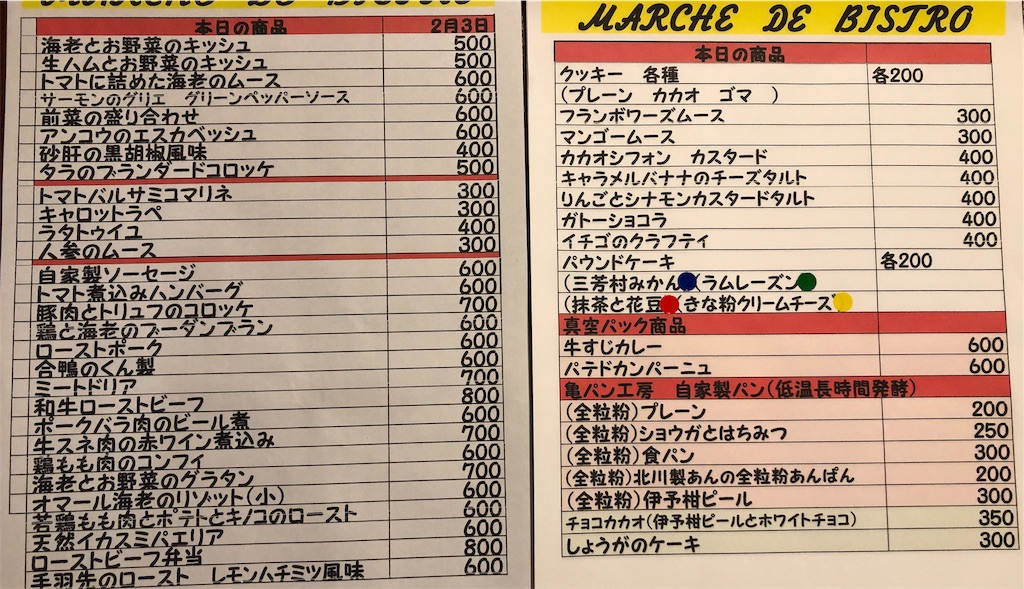 MARCHE DE BISTRO
本日の商品 2月3日
海老とお野菜のキッシュ 500
生ハムとお野菜のキッシュ 500
トマトに詰めた海老のムース 600
サーモンのグリエ グリーンペッパーソース 600
前菜の盛り合わせ 600
アンコウのエスカベッシュ 600
砂肝の黒胡椒風味 400
タラのブランダードコロッケ 500
トマトバルサミコマリネ 300
キャロットラペ 300
ラタトゥイユ 400
人参のムース 300
自家製ソーセージ 600
トマト煮込みハンバーグ 600
豚肉とトリュフのコロッケ 700
鶏と海老のブーダンブラン 600
ローストポーク 600
合鴨のくん製 600
ミートドリア 700
和牛ローストビーフ 800
ポークバラ肉のビール煮 600
牛スネ肉の赤ワイン煮込み 700
鶏もも肉のコンフィ 600
海老とお野菜のグラタン 700
オマール海老のリゾット(小) 600
若鶏もも肉とポテトとキノコのロースト 600
天然イカスミパエリア 600
ローストビーフ弁当 800
手羽先のロースト レモンハチミツ風味 600
MARCHE DE BISTRO
本日の商品
クッキー 各種 各200
(プレーン カカオ ゴマ )
フランボワーズムース 300
マンゴームース 300
カカオシフォン カスタード 400
キャラメルバナナのチーズタルト 400
りんごとシナモンカスタードタルト 400
ガトーショコラ 400
イチゴのクラフティ 400
パウンドケーキ 各200
(三芳村みかん (ラムレーズン
(抹茶と花豆 (きな粉クリームチーズ
真空パック商品
牛すじカレー 600
パテドカンパーニュ 600
亀パン工房 自家製パン(低温長時間発酵)
(全粒粉)プレーン 200
(全粒粉)ショウガとはちみつ 250
(全粒粉)食パン 300
(全粒粉)北川製あんの全粒粉あんぱん 200
(全粒粉)伊予柑ピール 300
チョコカカオ(伊予柑ピールとホワイトチョコ) 350
しょうがのケーキ 300